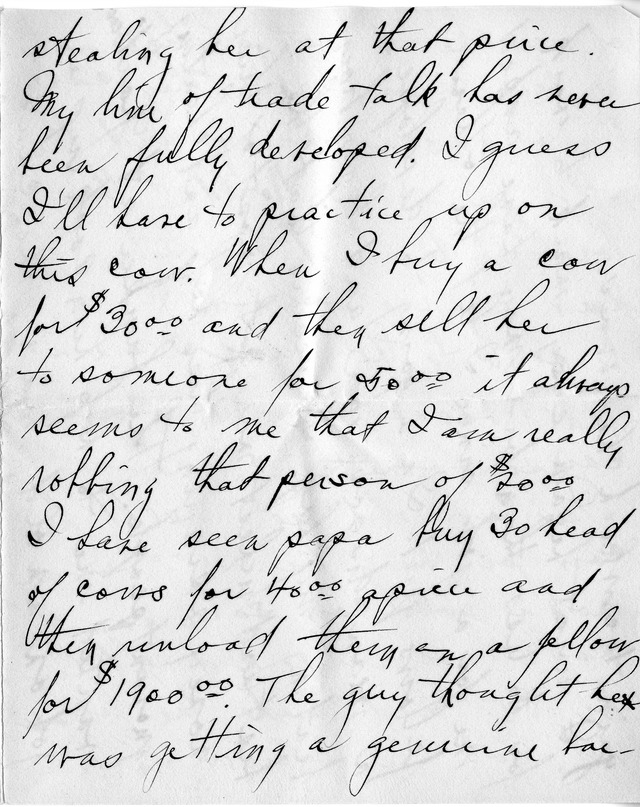 stealing her at that price.
My line of trade talk has never
been fully developed. I guess
I'll have to practice up on
this cow. When I buy a cow
for $30 00 and then sell her
to someone for 50 00 it always
seems to me that I am really
robbing that person of $20 00
I have seen papa buy 30 head
of cows for 40 00 apiece and
then unload them on a fellow
for $1900 00. The guy thought he
was getting a genuine bar-